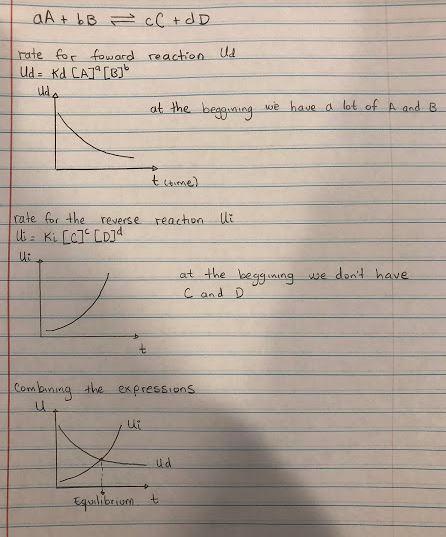 aA + bB ⇌ cC + dD
rate for foward reaction Ud
Ud = Kd [A]ᵃ [B]ᵇ
Ud
at the beggining we have a lot of A and B
t (time)
rate for the reverse reaction Ui
Ui = Ki [C]ᶜ [D]ᵈ
Ui
at the beggining we don't have
C and D
t
Combining the expressions
U
Ui
Ud
Equilibrium t